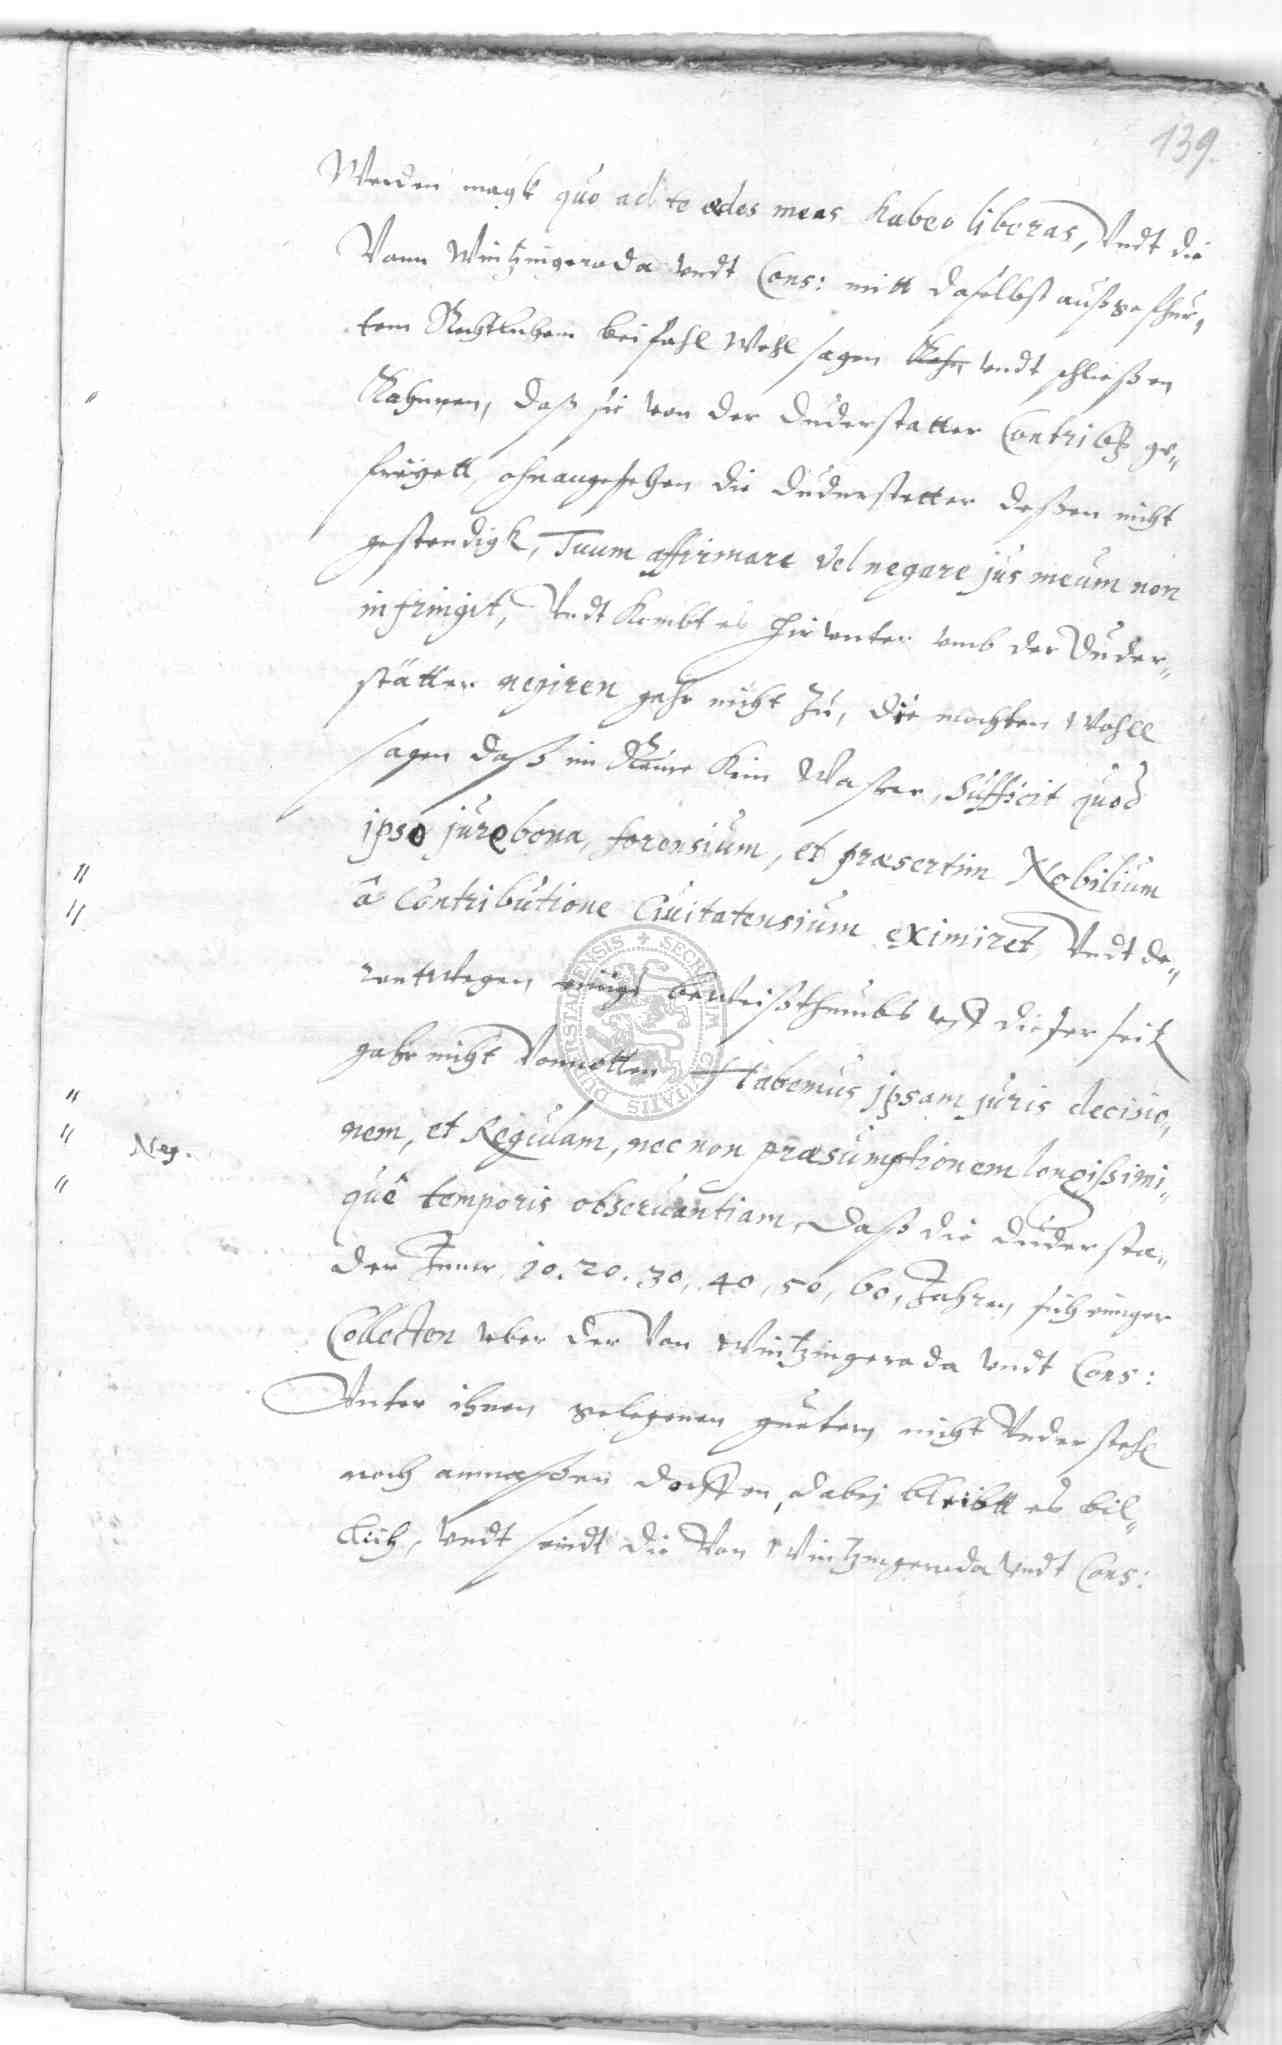 139.
Werden magk quo ad te ædes meas habeo liberas, Vndt die
Vonn Wintzingeroda vndt Cons: mitt daselbst außgefhur„
tem Rechtlichem beifahl Wohl sagen vndt schließen
Kahnnen, daß sie von der Duderstatter Contrib: ge„
freyett, ohnangesehen die Duderstetter deßen nicht
gestendigk, Tuum affirmare vel negare jus meum non
infringit, Vndt kombt es hirunter vmb der Duder„
stätter negiren gahr nicht zu, die mochten Wohll
sagen daß im Reine kein Waßer, Sufficit quod
ipso jure bona, forensium, et præsertim Nobilium
â Contributione Ciuitatensium eximiret, Vndt de„
rentwegen einigs beweißthumbs vff dieser seit
gahr nicht Vonnötten Habemus ipsam juris decisio„
nem, et Regulam, nec non præsumptionem longissimi„
Neg.
quê temporis obseruantiam, daß die Dudersta„
der Inner 10. 20. 30, 40, 50, 60, Jahren, sich einiger
Collecten vber der Von Wintzingeroda vndt Cons:
Vnter ihnen gelegenen guetern nicht Vnderstehn
noch anmaßen dorffen, dabej bleibtt es bil„
lich, vndt seindt die Von Wintzingeroda vndt Cons:
SECRETUM CIVITATIS DUDERSTADENSIS